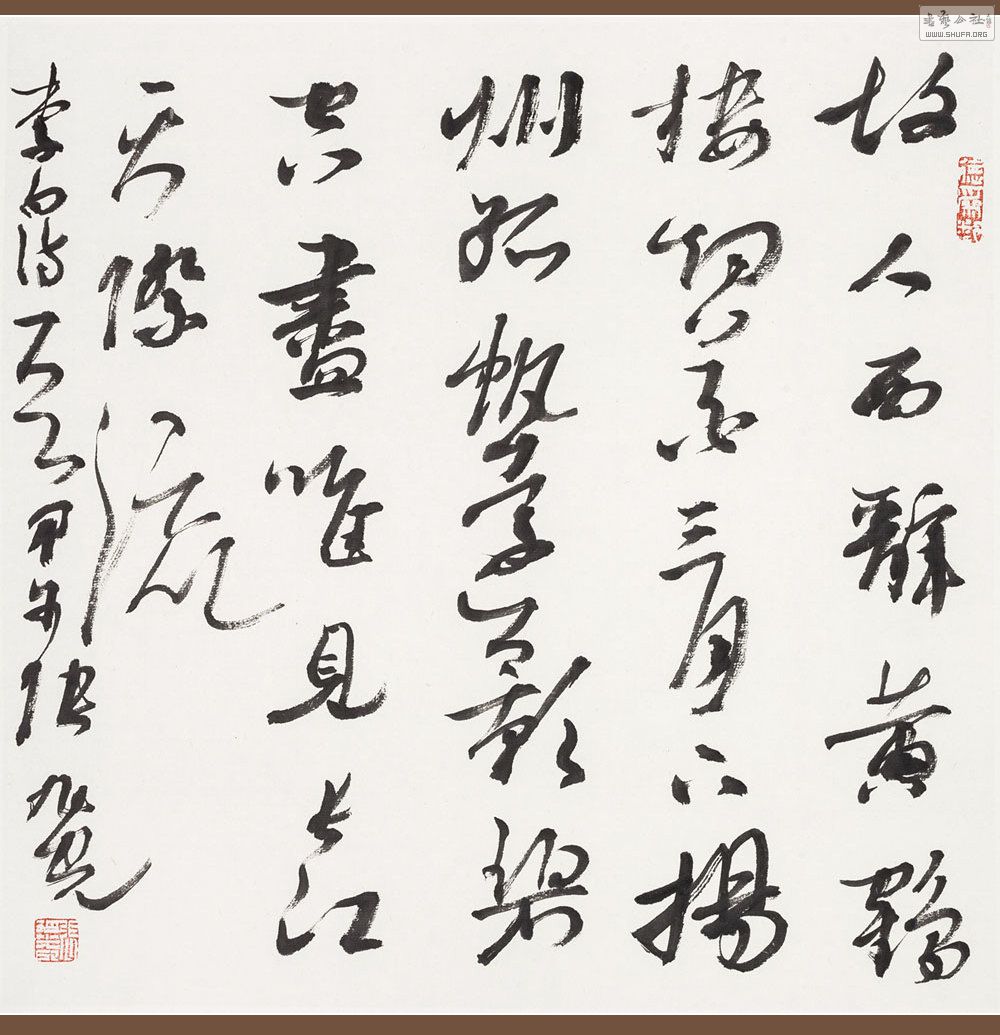 故人西辭黃鶴
樓烟花三月下揚
州孤帆遠影碧
空盡唯見長江
天際流
李白詩 甲午張旭光
書藝公社
WWW.SHUFA.ORG